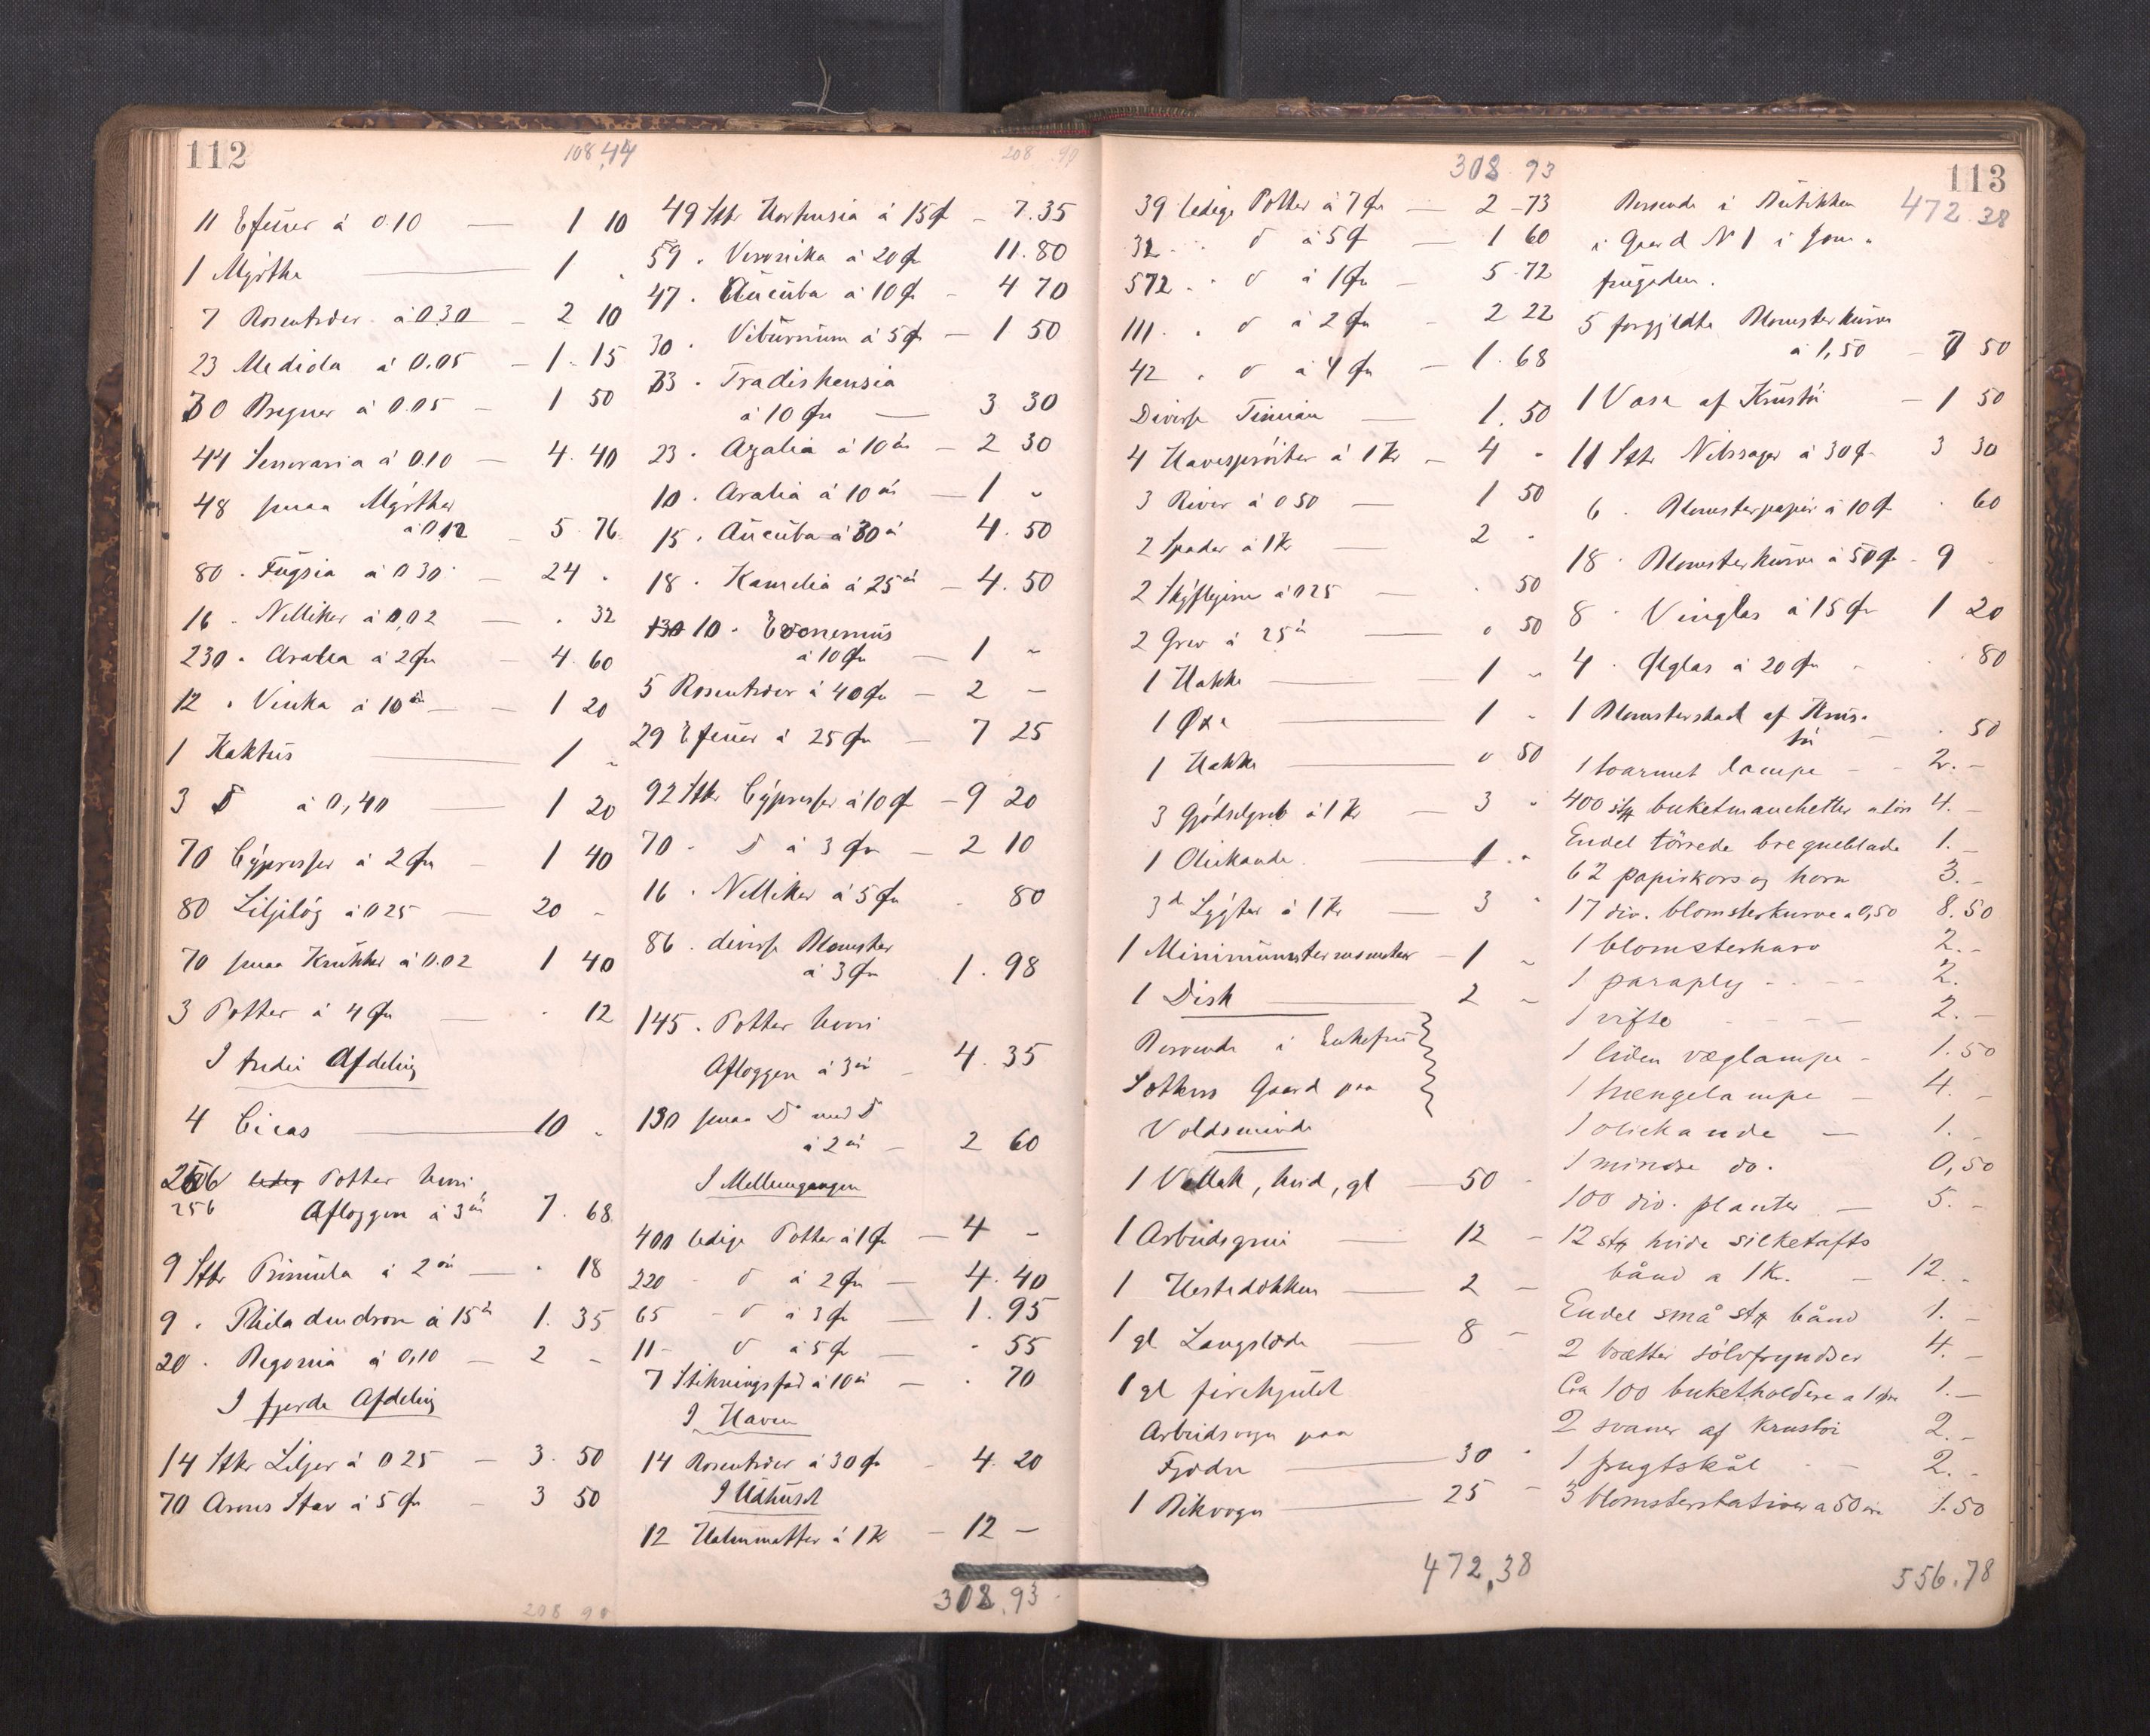 112
108,44
11 Efeuer á 0.10 — 1 10
1 Myrthe — 1 "
7 Rosentræer á 0.30 — 2 10
23 Mediola á 0.05 — 1 - 15
30 Bregner á 0.05 — 1 50
44 á 0.10 — 4. 40
48 smaa Myrther
á 0.12 — 5 76
80 . Fügsia á 0 30 — 24 "
16 . Nelliker á 0,02 — . 32
230 . Aralia á 2 Øre — 4. 60
12 . Vinka á 10 ør — 1 20
1 Kaktüs — 1 "
3 D á 0,40 — 1 20
70 Cÿpresser á 2 Øre — 1 40
80 Liljeløg á 0 25 — 20 -
70 smaa Krükker á 0.02 1 40
3 Potter á 4 Øre — . 12
I tredie Afdeling
4 Cicas — 10 "
256 ledig Potter henni
256 Afloggere á 3 ør 7. 68
9 Stkr Primula á 2 ør — . 18
9 . Philadendron á 15 ør 1. 35
20 . Begonia á 0,10 — 2 -
I fjerde Afdeling
14 Stkr Liljer á 0 25 — 3. 50
70 Arons Stav á 5 Øre — 3 50
208 90
208 .90
49 Stkr Hortensia á 15 Ø — 7.35
59 . Veronika á 20 Ør 11.80
47 . Aücüba á 10 Ør — 4 70
30 . Vibürnüm á 5 Ør — 1 50
33 . Tradiskensia
á 10 Øre — 3 30
23 . Azalia á 10 ør — 2 30
10 . Aralia á 10 ør — 1 "
15 . Aücüba á 30 ø 4. 50
18 . Kamelia á 25 ør — 4. 50
130 10 . Evonemüs
á 10 Øre — 1 "
5 Rosentræer á 40 Øre — 2 —
29 Efeuer á 25 Øre — 7 25
92 Stkr Cÿpresser á 10 Ø — 9 20
70 . D á 3 Øre — 2 10
16 . Nelliker á 5 Øre . 80
86 . diverse Blomster
á 3 Øre 1. 98
145 . Potter henni
Afloggere á 3 ør — 4. 35
130 smaa D med D
á 2 ør — 2 60
I Mellemgangen
400 ledige Potter á 1 Ør — 4 -
220 d á 2 Øre — 4. 40
65 - d á 3 Øre — 1. 95
11 - d á 5 Ør — . 55
7 Stikningsfad á 10 ør — . 70
I Haven
14 Rosentræer á 30 Ør — 4. 20
I Udhuset
12 Halmmatter á 1 Kr — 12 —
308.93
308.93
39 ledige Potter á 7 Øre — 2 - 73
32 . . d á 5 Ø — 1 60
572 . . d á 1 Øre — 5.72
111 . . d á 2 Øre - 2 22
42 . d á 4 Øre — 1. 68
Diverse — 1. 50
4 Havesprøiter á 1 Kr — 4 "
3 River á 0 50 — 1 50
2 Spader á 1 Kr — 2 "
2 á 0 25 — . 50
2 Grev á 25 ø — " 50
1 Hakke — 1 "
1 Øxe — 1 "
1 Hakke — " 50
3 Gjødselgreb á 1 Kr — 3 "
1 Oliekande — 1 "
3 d Lygter á 1 Kr — 3 "
1 Minimümstermometer — 1 "
1 Disk — 2 "
Beroende i Enkefrü
Gaard paa
Voldsminde
1 Vallak, hvid, gl — 50 -
1 Arbeidsgrei — 12 -
1 Hestedækken — 2 -
1 gl Langslæde — 8 -
1 gl firehjulet
Arbeidsvogn paa
Fjædre — 30 "
1 — 25 -
472,38
113
472.38
Beroende i Bütikken
i Gaard N 1 i Jom-
frügaden.
5 forgyldte Blomsterkürve
á 1,50 — 7 50
1 Vase af Krüstøi — 1 50
11 Stkr Nipssager á 30 Ø - 3 30
6 . Blomsterpapir á 10 Ø . 60
18 . Blomsterkürve á 50 Ør - 9 -
8 . Vinglas á 15 Øre 1 20
4 . Ølglas á 20 Øre - . 80
1 Blomsterskaal af Krüs-
tøi — . 50
1 toarmet lampe - - 2. -
400 stk buketmanchetter a 1 øre 4. -
Endel tørrede bregneblade 1. -
62 papirkors og horn 3. -
17 div. blomsterkurve a 0,50 8.50
1 blomsterkurv 2. -
1 paraply - - - - 2.
1 vifte - - - - 2. -
1 liden væglampe - 1.50
1 hængelampe — 4. -
1 oliekande — 1. -
1 mindre do. 0,50
100 div. planter — 5. -
12 stk hvide silketafts
bånd a 1 Kr. — 12. -
Endel små stk bånd 1. -
2 sølvfryndser 4. -
Cra 100 buketholdere a 1 øre 1. —
2 svaner af krustøi 2. -
1 frugtskål — 2. -
3 blomsterstativer a 50 øre 1.50
556.78